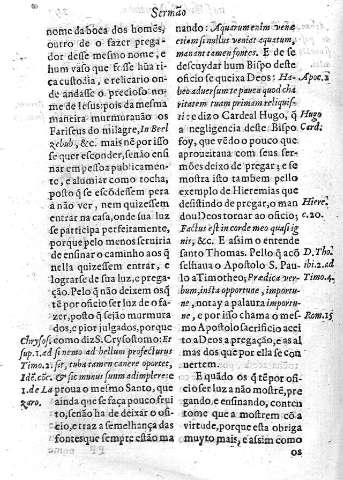 Sermão
nome da boca dos homẽs,
outro de o fazer prega-
dor desse mesmo nome, e
hum vaso que fosse hũa ri-
ca custodia, e relicario on-
de andasse o precioso no-
me de Iesus; pois da mesma
maneira murmurauão os
Fariseus do milagre, In Beel
zebub, &c. mais nẽ por isso
se quer esconder, senão ensi
nar em pessoa publicamen-
te, e alumiar como tocha,
posto q̃ se escõdessem pera
a não ver, nem quizessem
entrar na casa, onde sua luz
se participa perfeitamente,
porque pelo menos seruiria
de ensinar o caminho aos q̃
nella quizessem entrar, e
lograrse de sua luz, e prega-
ção. Pelo q̃ não deixem os q̃
tẽ por oficio ser luz de o fa-
zer, posto q̃ sejão murmura
dos, e pior julgados, porque
Chrysos. como diz S. Crysostomo: Et
sup. 1. ad si nemo ad bellum profecturus
Timo. 2. sit, tuba tamen canere oportet,
Idẽ. cõc. & sic munus suum adimplere: e
1. de La proua o mesmo Santo, que
zaro. ainda que se faça pouco frui
to, senão ha de deixar o ofi-
cio, e traz a semelhança das
fontes que sempre estão ma
nando: Aquarum enim venæ
etiam si nullus veniat aquatum,
manant tamen fontes. E de se
descuydar hum Bispo deste
oficio se queixa Deos: Ha- Apoc. 2
beo aduersum te pauca quod cha
ritatem tuam primam reliquis-
ti: e diz o Cardeal Hugo, q̃ Hugo
a negligencia deste Bispo Card.
foy, que vẽdo o pouco que
aproueitaua com seus ser-
mões deixo de pregar; e se
mostra isto tambem pello
exemplo de Hieremias que
desistindo de pregar, o man Hiere.
dou Deos tornar ao oficio; c. 20.
Factus est in corde meo quasi ig
nis, &c. E assim o entende
santo Thomas. Pello q̃ acõ D. Tho.
selhaua o Apostolo S. Pau- ibi. 2. ad
lo a Timotheo; Prædica ver- Timo. 4.
bum, insta opportune, importu
ne, notay a palaura importu-
ne, e por isso chama o mes- Rom. 15
mo Apostolo sacrificio acei
to a Deos a pregação, e as al
mas dos que por ella se con
uertem.
E quãdo os q̃ tẽ por ofi-
cio ser luz a não mostrẽ, pre
gando, e ensinando, conten
tome que a mostrem cõ a
virtude, porque esta obriga
muyto mais, e assim como
os